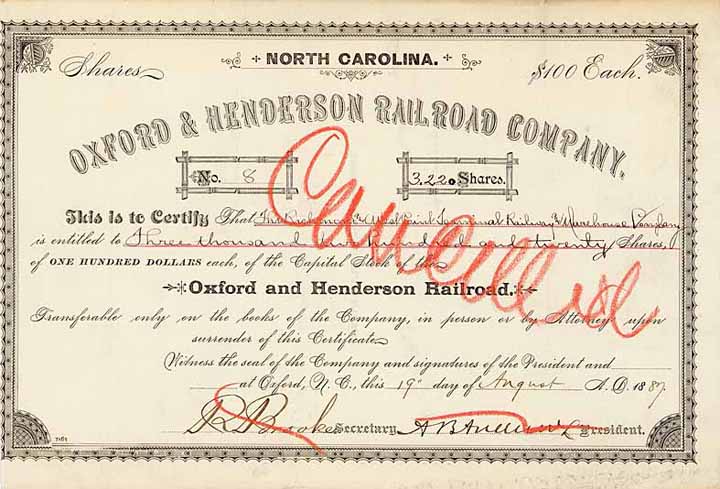 NORTH CAROLINA.
Shares $100 Each.
OXFORD & HENDERSON RAILROAD COMPANY.
No. 8 3,220 Shares.
This is to Certify That The Richmond & West Point Terminal Railway & Warehouse Company
is entitled to Three thousand two hundred and twenty Shares,
of ONE HUNDRED DOLLARS each, of the Capital Stock of the
Oxford and Henderson Railroad.
Transferable only on the books of the Company, in person or by Attorney upon
surrender of this Certificate
Witness the seal of the Company and signatures of the President and
at Oxford, N.C., this 19" day of August A.D. 1887
Brookes Secretary A B Andrews President.
Cancelled